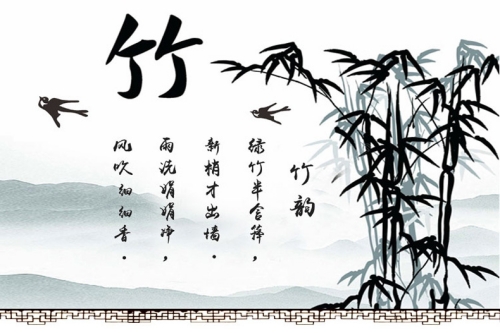 竹
竹韵
绿竹半含箨，
新梢才出墙。
雨洗娟娟净，
风吹细细香。